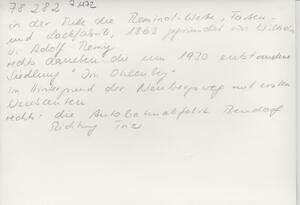 78 282
in der Mitte die Reminol-Werke, Farben-
und Lackfabrik, 1863 gegründet von Wilhelm
u. Adolf Remy
rechts daneben die um 1930 entstandene
Siedlung "Im Ohlenberg"
im Hintergrund der Neubergsweg mit ersten
Neubauten
rechts: die Autobahnabfahrt Bendorf
Richtung Trier